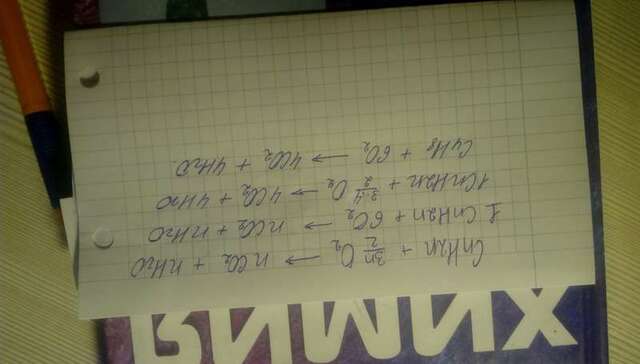 ХИМИЯ
CnH2n + 3n/2 O2 → nCO2 + nH2O
1CnH2n + 6O2 → nCO2 + nH2O
1CnH2n + 3·4/2 O2 → 4CO2 + 4H2O
C4H8 + 6O2 → 4CO2 + 4H2O